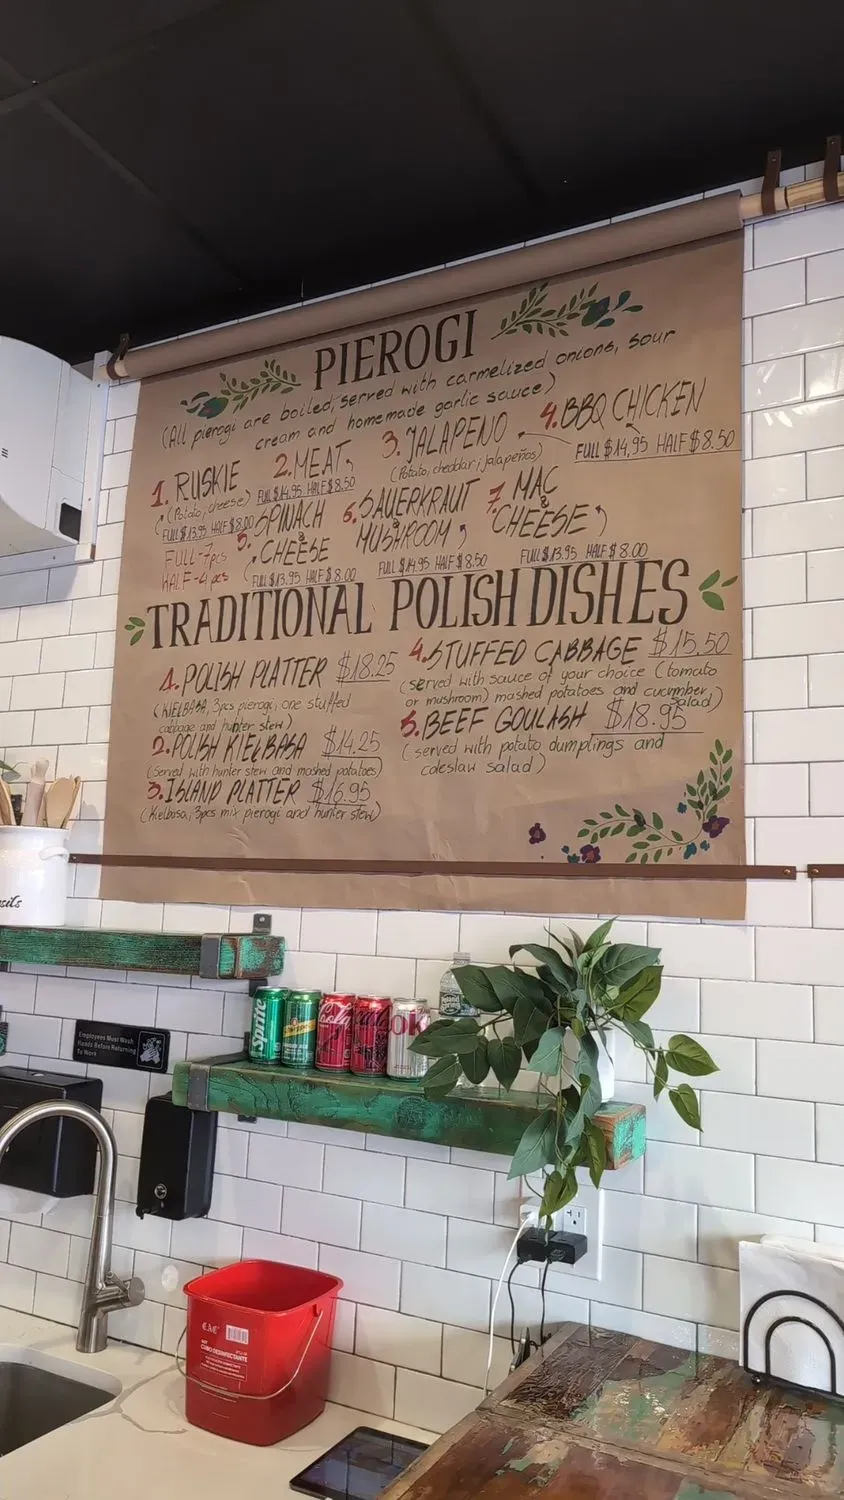 PIEROGI
(All pierogi are boiled, served with carmelized onions, sour
cream and homemade garlic sauce)
1. RUSKIE
(Potato, cheese)
FULL $13.95 HALF $8.00
FULL-7pcs
HALF-4pcs
2. MEAT
FULL $14.95 HALF $8.50
3. JALAPENO
(Potato, cheddar i jalapeños)
4. BBQ CHICKEN
FULL $14,95 HALF $8.50
5. SPINACH
&
CHEESE
FULL $13.95 HALF $8.00
6. SAUERKRAUT
&
MUSHROOM
FULL $14.95 HALF $8.50
7. MAC
&
CHEESE
FULL $13.95 HALF $8.00
TRADITIONAL POLISH DISHES
1. POLISH PLATTER $18.25
(KIELBASA, 3pcs pierogi, one stuffed
cabbage and hunter stew)
2. POLISH KIELBASA $14.25
(Served with hunter stew and mashed potatoes)
3. ISLAND PLATTER $16.95
(Kielbasa, 3pcs mix pierogi and hunter stew)
4. STUFFED CABBAGE $15.50
(served with sauce of your choice (tomato
or mushroom) mashed potatoes and cucumber
salad)
5. BEEF GOULASH $18.95
(served with potato dumplings and
coleslaw salad)
Sprite
Employees Must Wash
Hands Before Returning
To Work